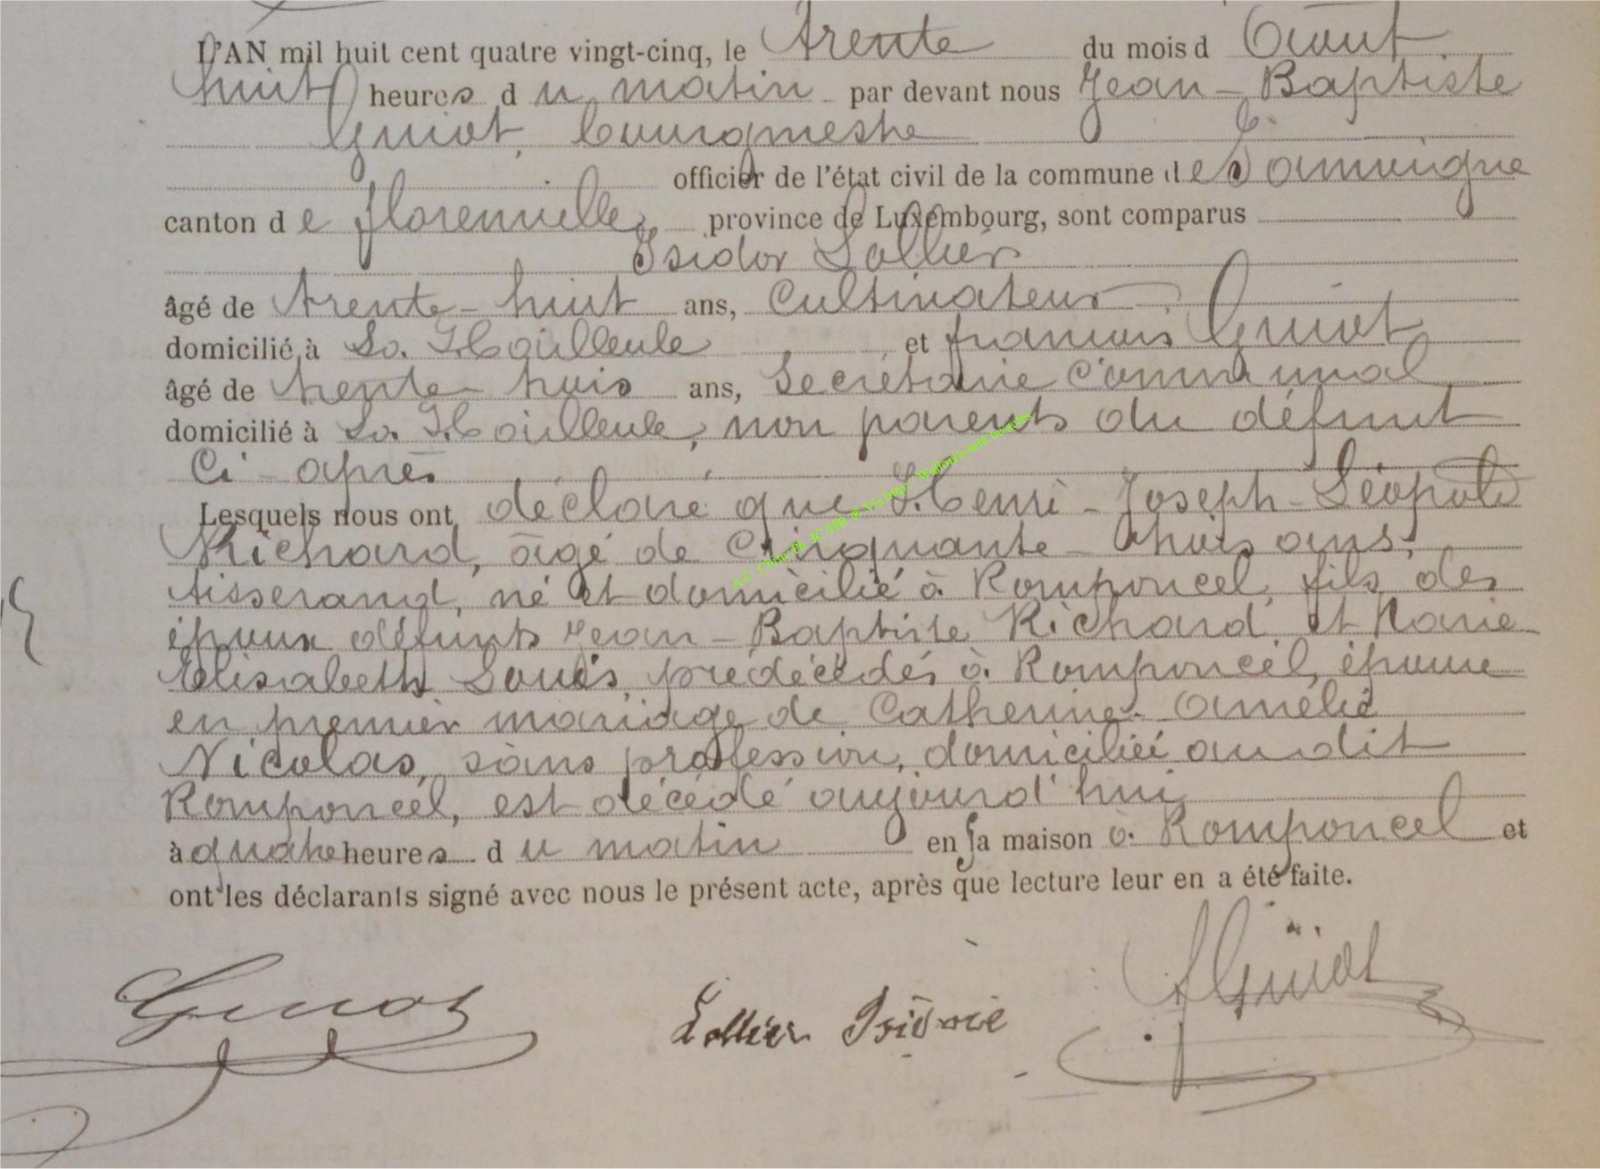 L'AN mil huit cent quatre vingt-cinq, le trente du mois d Août
huit heures du matin par devant nous Jean-Baptiste
Guiot, bourgmestre
officier de l'état civil de la commune de
canton de florenville, province de Luxembourg, sont comparus
Isidor Lallier
âgé de trente-huit ans, Cultivateur
domicilié à La Hailleule et francois Guiot
âgé de trente-trois ans, Secrétaire Communal
domicilié à La Hailleule, non parents du défunt
Ci-après
Lesquels nous ont déclaré que Henri-Joseph-Léopold
Richard, âgé de Cinquante-trois ans,
tisserand, né et domicilié à Romponcel, fils des
époux défunts Jean-Baptiste Richard et Marie
Elisabeth Louis, prédécédés à Romponcel, époux
en premier mariage de Catherine-Amélie
Nicolas, sans profession, domiciliée au dit
Romponcel, est décédé aujourd'hui
à quatre heures du matin en sa maison à Romponcel et
ont les déclarants signé avec nous le présent acte, après que lecture leur en a été faite.
Guiot Lallier Isidore f Guiot